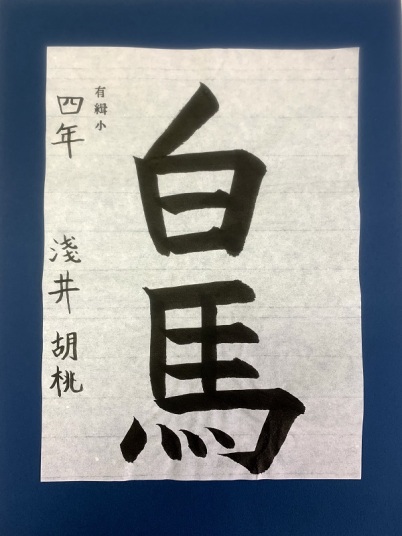 白馬
有緝小
四年 淺井胡桃